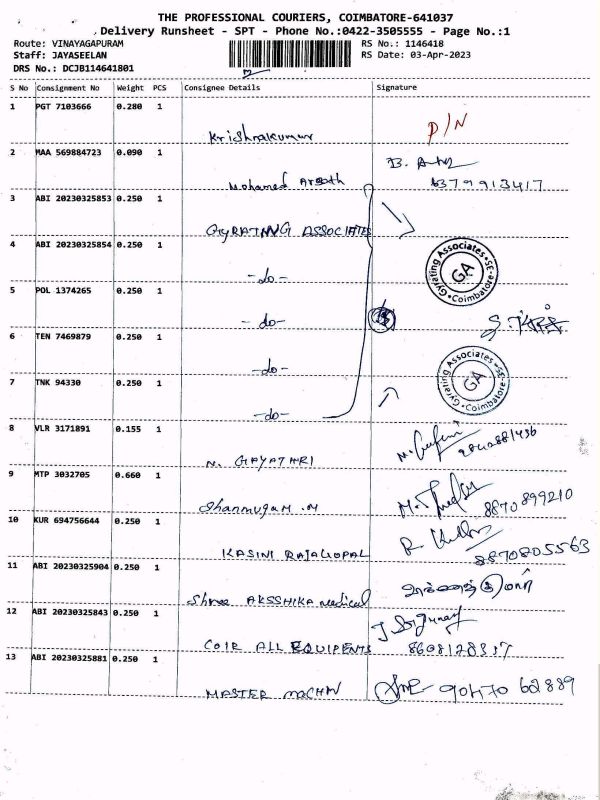 THE PROFESSIONAL COURIERS, COIMBATORE-641037
Delivery Runsheet - SPT - Phone No.:0422-3505555 - Page No.:1
Route: VINAYAGAPURAM RS No.: 1146418
Staff: JAYASEELAN RS Date: 03-Apr-2023
DRS No.: DCJB114641801
S No Consignment No Weight PCS Consignee Details Signature
1 PGT 7103666 0.280 1
Krishnakumar P/N
2 MAA 569884723 0.090 1
Mohamed 6379913417
3 ABI 20230325853 0.250 1
GYRATING ASSOCIATES
4 ABI 20230325854 0.250 1
-do- Gyrating Associates SE- Coimbatore- GA
5 POL 1374265 0.250 1
-do-
6 TEN 7469879 0.250 1
-do- Gyrating Associates SE- Coimbatore- GA
7 TNK 94330 0.250 1
-do-
8 VLR 3171891 0.155 1
N. GAYATHRI
9 MTP 3032705 0.660 1
Shanmugam .M 8870899210
10 KUR 694756644 0.250 1
KASINI RAJAGOPAL 8870805563
11 ABI 20230325904 0.250 1
Shree AKSSHIKA medical
12 ABI 20230325843 0.250 1
COIR ALL EQUIPENTS
13 ABI 20230325881 0.250 1
MASTER 90470 62889